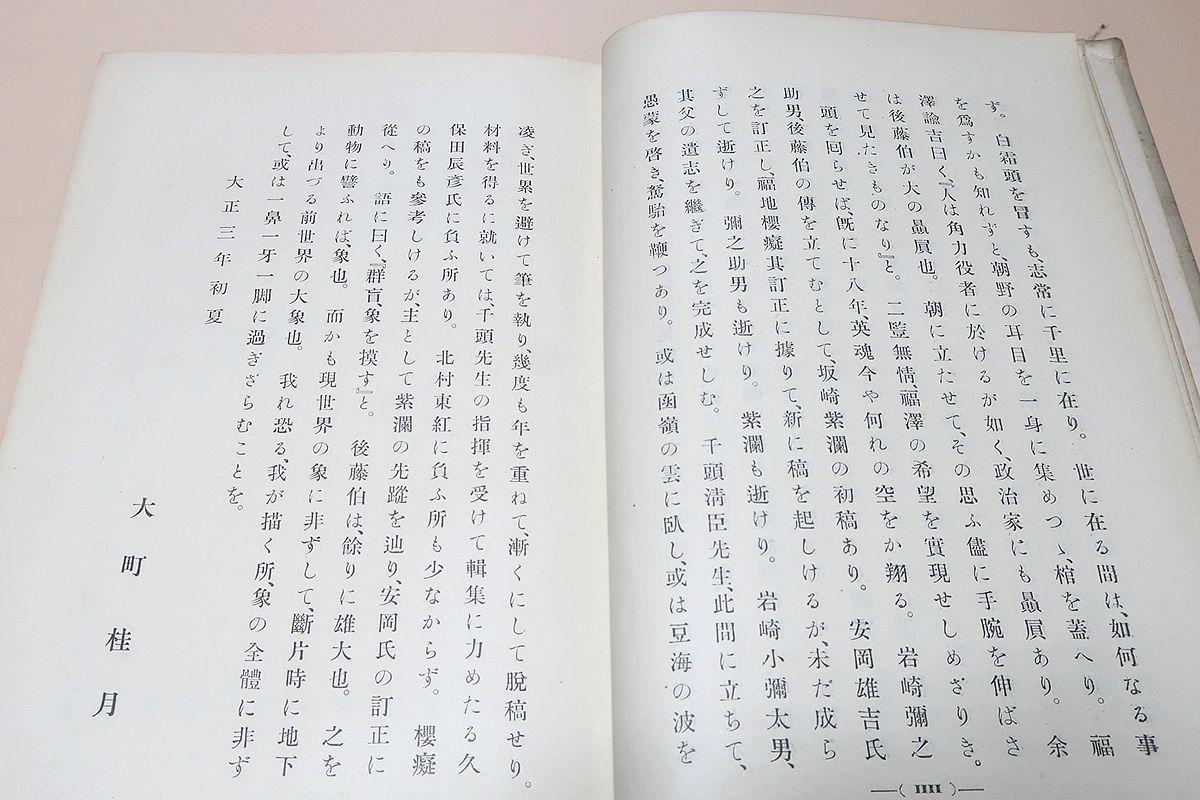 ず。白霜頭を冒すも、志常に千里に在り。世に在る間は、如何なる事
を爲すかも知れずと、朝野の耳目を一身に集めつゝ、棺を蓋へり。福
澤諭吉曰く、『人は角力役者に於けるが如く、政治家にも贔屓あり。余
は後藤伯が大の贔屓也。朝に立たせて、その思ふ儘に手腕を伸ばさ
せて見たきものなり』と。二豎無情、福澤の希望を實現せしめざりき。
頭を回らせば、既に十八年、英魂今や何れの空をか翔る。岩崎彌之
助男、後藤伯の傳を立てむとして、坂崎紫瀾の初稿あり。安岡雄吉氏
之を訂正し、福地櫻癡其訂正に據りて、新に稿を起しけるが、未だ成ら
ずして逝けり。彌之助男も逝けり。紫瀾も逝けり。岩崎小彌太男、
其父の遺志を繼ぎて、之を完成せしむ。千頭淸臣先生、此間に立ちて、
愚蒙を啓き、駑駘を鞭つあり。或は函嶺の雲に臥し、或は豆海の波を
―( 三 )―
凌ぎ、世累を避けて筆を執り、幾度も年を重ねて、漸くにして脫稿せり。
材料を得るに就いては千頭先生の指揮を受けて輯集に力めたる久
保田辰彥氏に負ふ所あり。北村東紅に負ふ所も少なからず。櫻癡
の稿をも參考しけるが、主として紫瀾の先蹤を辿り、安岡氏の訂正に
從へり。語に曰く、『群盲、象を摸す』と。後藤伯は、餘りに雄大也。之を
動物に譬ふれば、象也。而かも現世界の象に非ずして、斷片時に地下
より出づる前世界の大象也。我れ恐る、我が描く所、象の全體に非ず
して、或は一鼻一牙一脚に過ぎざらむことを。
大正三年初夏
大町桂月